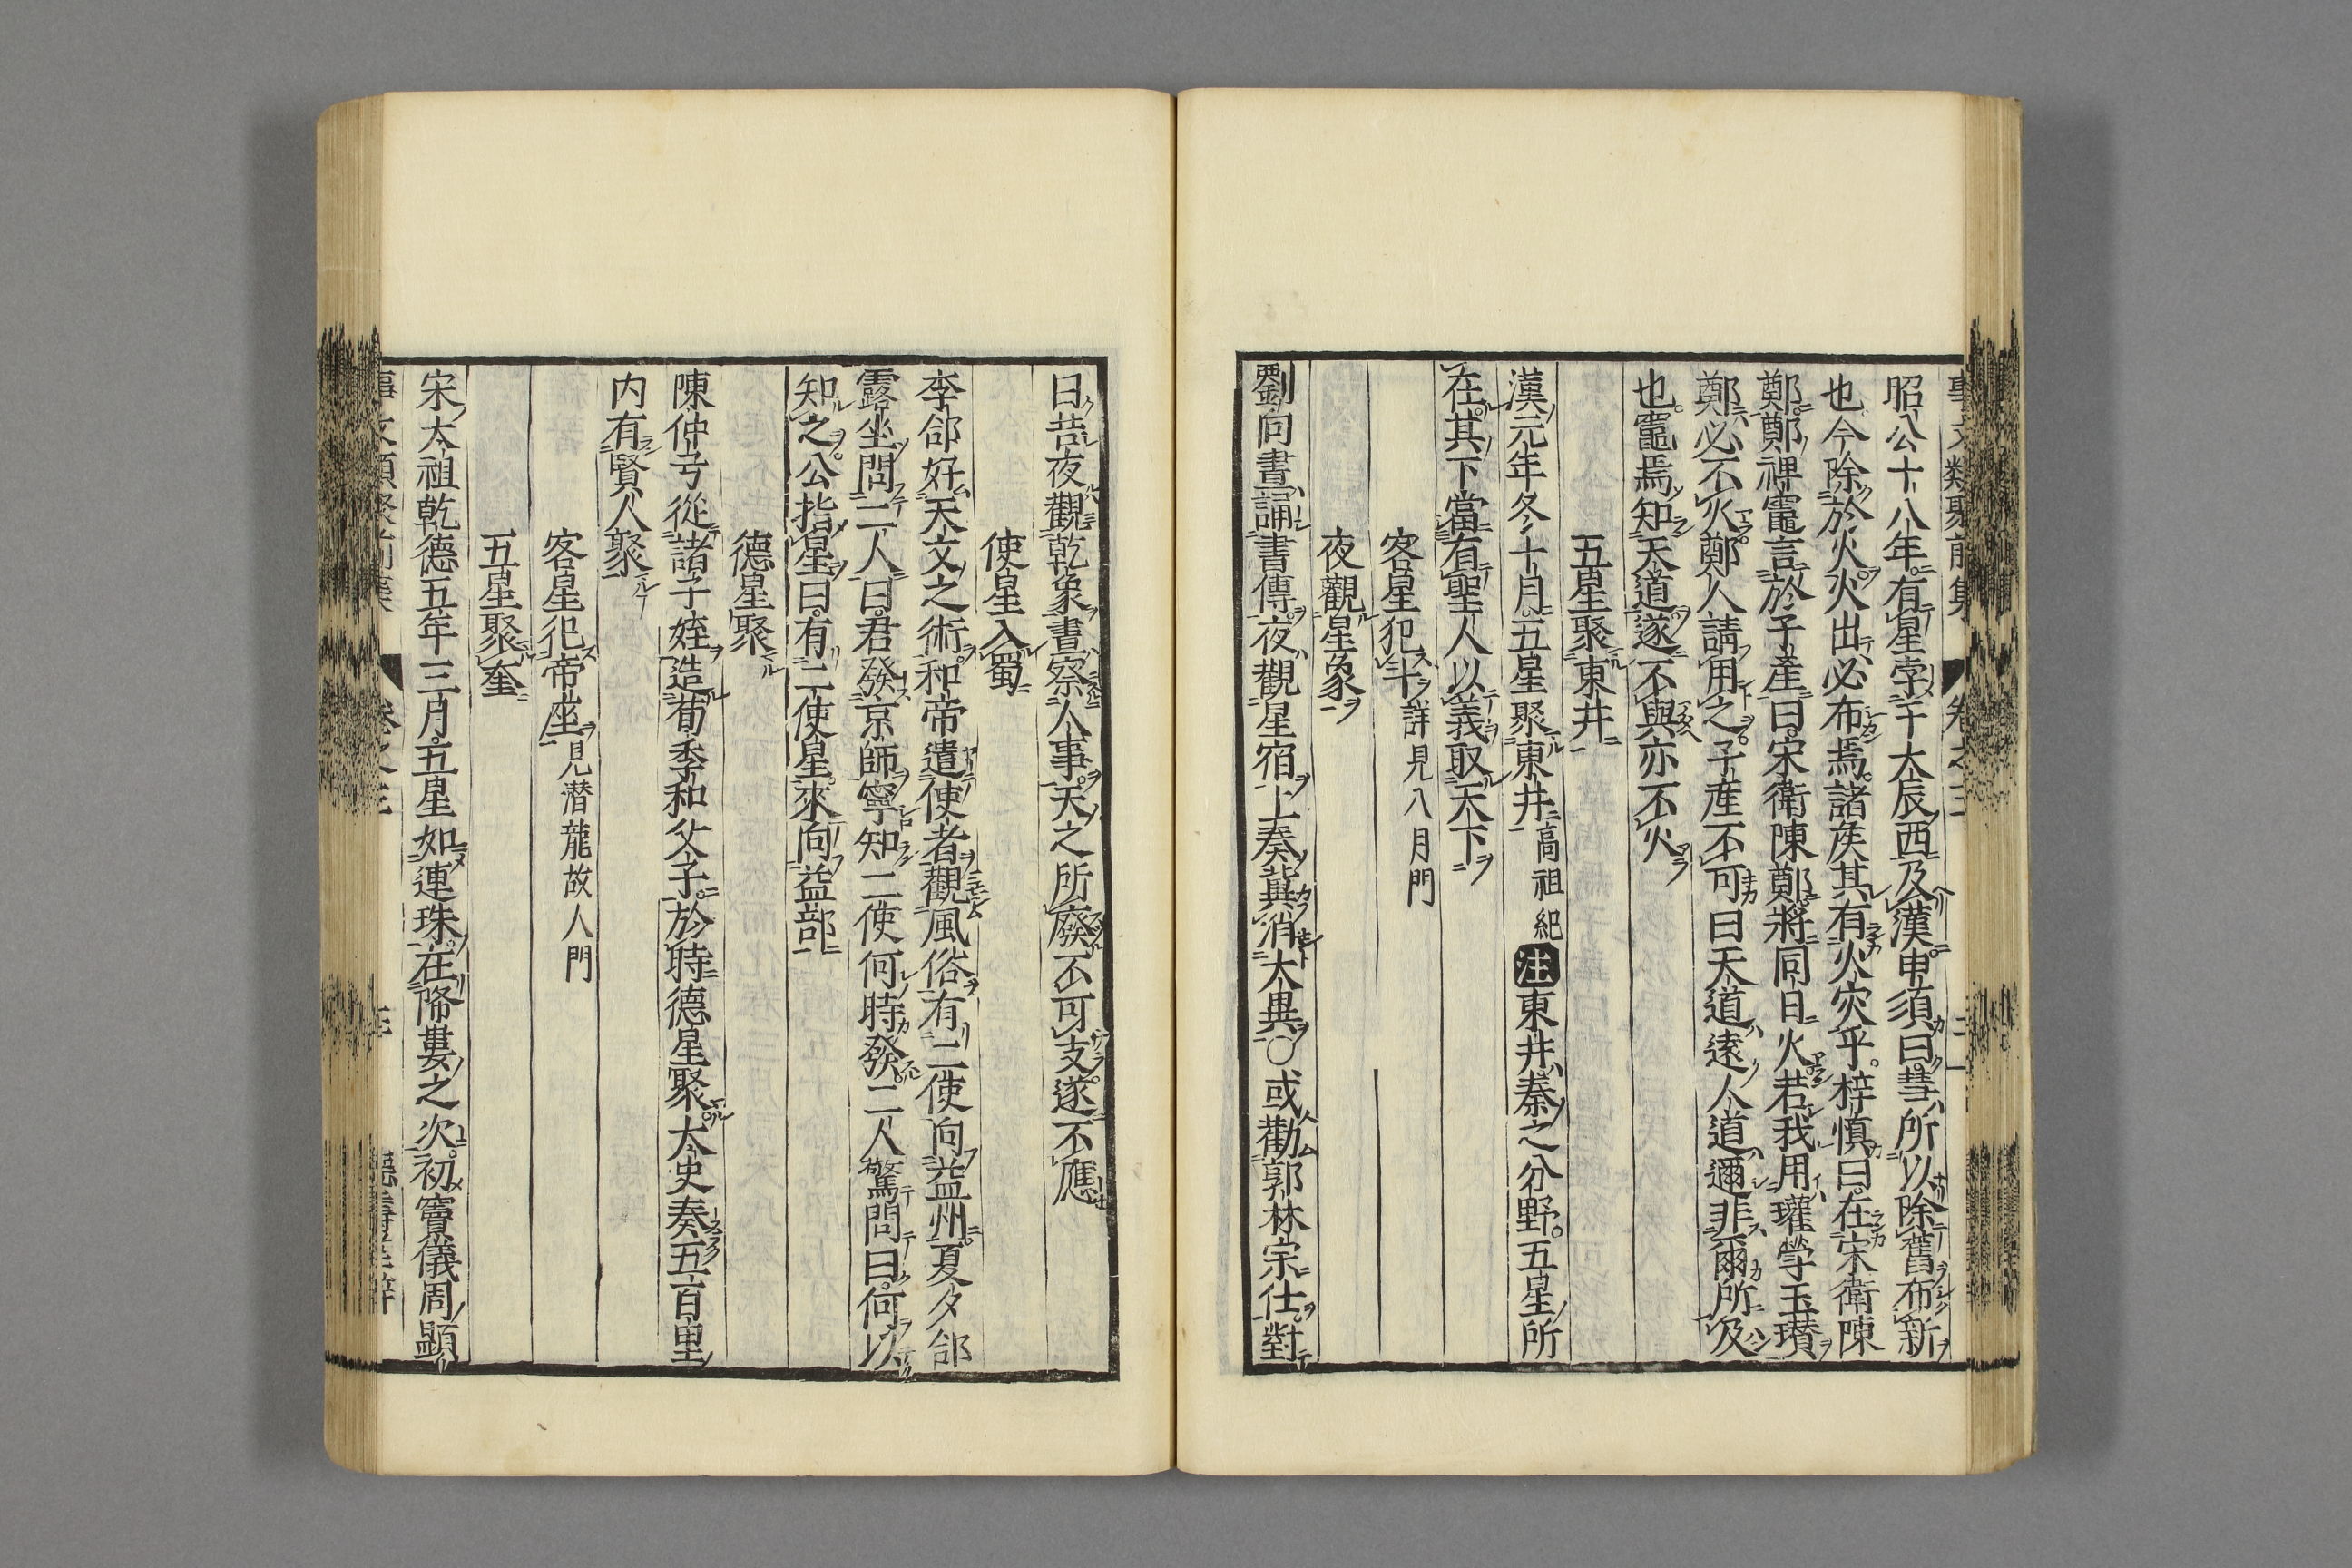 昭公十八年有星孛于大辰西及漢申須曰彗所以除舊布新
也今除於火火出必布焉諸侯其有火灾乎梓慎曰在宋衛陳
鄭鄭裨竈言於子產曰宋衛陳鄭將同日火若我用瓘斝玉瓚
鄭必不火鄭人請用之子產不可曰天道遠人道邇非爾所及
也竈焉知天道遂不與亦不火
五星聚東井
漢元年冬十月五星聚東井高祖紀注東井秦之分野五星所
在其下當有聖人以義取天下
客星犯斗詳見八月門
夜觀星象
劉向晝誦書傳夜觀星宿上奏冀消大異〇或勸郭林宗仕對
曰昔夜觀乾象晝察人事天之所廢不可支遂不應
使星入蜀
李郃好天文之術和帝遣使者觀風俗有二使向益州夏夕郃
露坐問二人曰君發京師寧知二使何時發二人驚問曰何以
知之公指星曰有二使星來向益部
德星聚
陳仲弓從諸子姪造荀季和父子於時德星聚太史奏五百里
内有賢人聚
客星犯帝坐見潜龍故人門
五星聚奎
宋太祖乾德五年三月五星如連珠在降婁之次初竇儀周顯